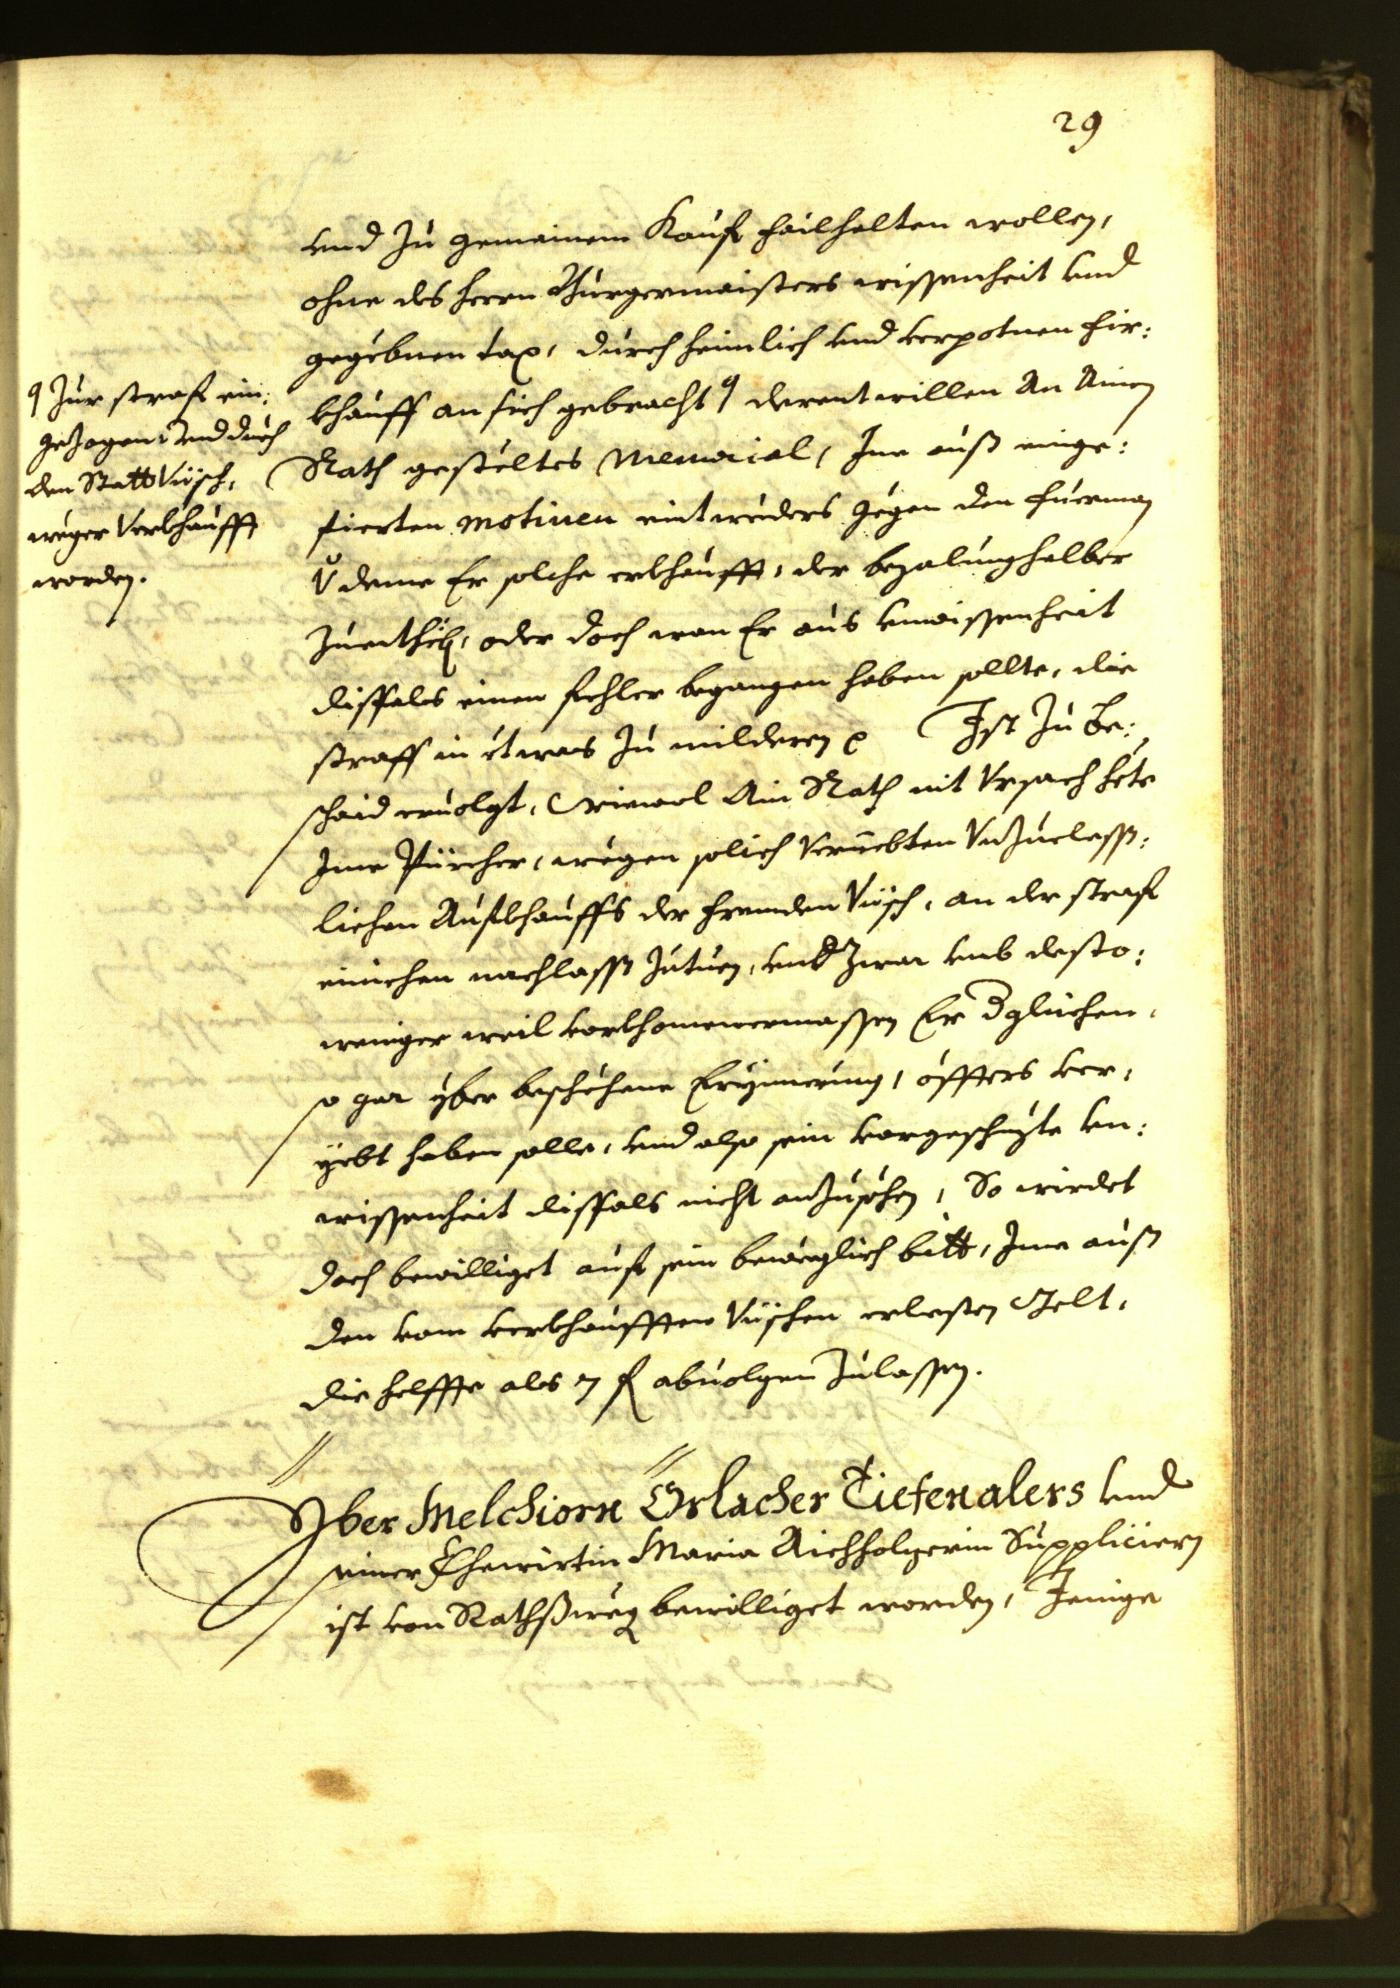 29
vnd zu gemainem Kauf failhalten wollen,
ohne des herrn Burgermaisters wissenheit vnd
gegebnen tax, durch heimlich vnd verpotnen fir:
khauff an sich gebracht derentwillen An Ainen
Rath gestöltes Memorial, Ime auß einge:
fierten motiuen eintweders gegen den fuerman
deme Er solche erkhaufft, der bezalung halber
oder doch wan Er aus vnwissenheit
dissfals einen fehler begangen haben sollte, die
straff in etwas zu mildern Ist zu be:
schaid eruolgt, wiewol Ain Rath nit Vrsach hete
Ime Pürcher, wegen solich veriebten Vnzuelässi:
lichen Aufkhauffs der frembden Visch, an der straf
einichen nachlaß zutuen, vnd zwar vmb desto:
weniger weil vorkhomenermassen Er dglichen,
so gar yber beschehene Erynnerung, öffters ver,
yebt haben solle, vnd also sein vorgeschuzte vn:
wissenheit dissfals nicht anzusehen, So wirdet
doch bewilliget auf sein beweglich bitt, Ime auß
den vom verkhaufften Vischen erlesten Gelt,
die helffte als 7 f abuolgen zulassen.
zur straf ein:
gezogen vnd durch
den Statt Visch,
weger verkhaufft
worden.
Yber Melchiorn Örlacher Tiefenalers vnd
seiner Ehewirtin Maria Aichholzerin Suppliciern
ist von Raths weg bewilliget worden, Jenige